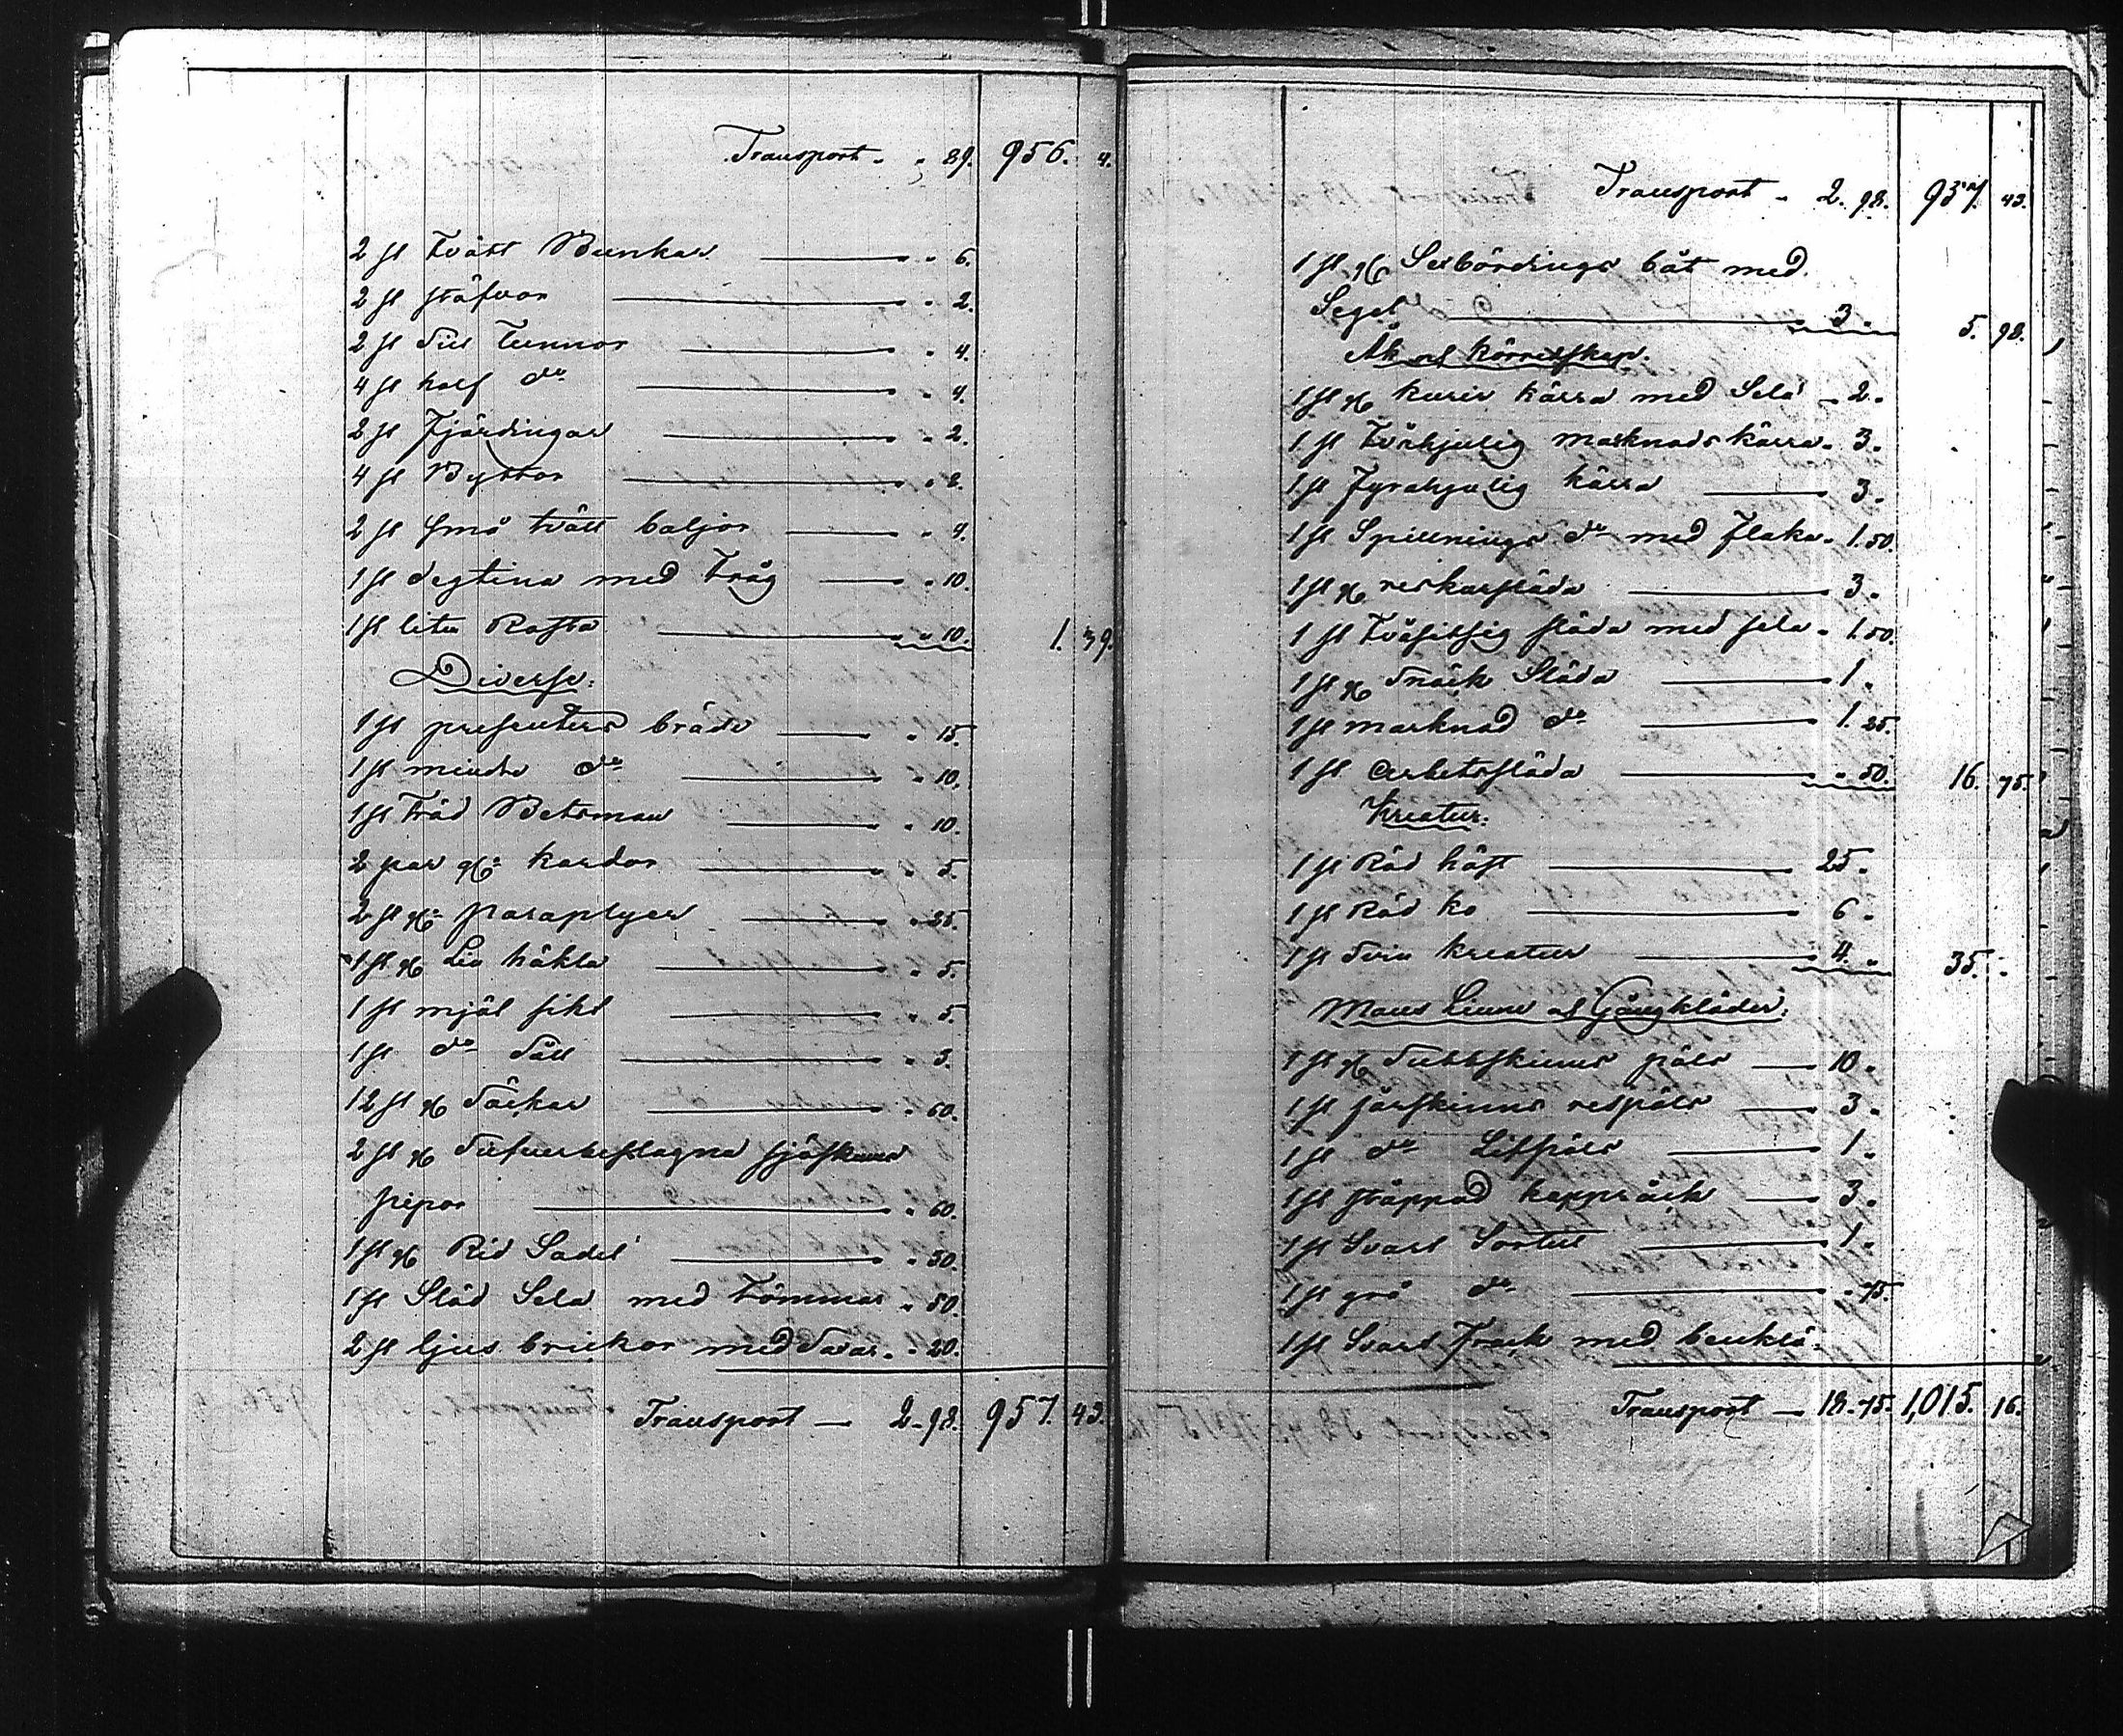 Transport - " 89. 956. 4.
2 st Tvätt Bunkar " 6.
2 st stäfvor " 2.
2 st Sill Tunnor " 4.
4 st half do " 4.
2 st Fjärdingar " 2.
4 st Byttor " 8.
2 st små tvätt baljor " 4.
1 st degtina med Tråg " 10.
1 st liten Rosta " 10. 1. 39.
Diverse:
1 st presenters bräde " 15.
1 st mindre do " 10.
1 st Träd Betsman " 10.
2 par gl: kardor " 5.
2 st gl: paraplyer " 25.
1 st gl Lin häkla " 5.
1 st mjöl sikt " 5.
1 st do Såll " 3.
12 st gl Säckar " 60.
2 st gl Silfverbeslagna sjöskums
pipor " 60.
1 st gl Rid Sadel " 30.
1 st Släd Sela med Tömmar " 50.
2 st ljus brickor med Saxar " 20.
Transport — 2.98. 957. 43.
Transport - 2. 98. 957. 43.
1 st gl Sexbördings båt med
Segel 3 " 5. 98.
Åk och Körredskap.
1 st gl kurir kärra med Sela 2 "
1 st Tvåhjulig marknads kärra 3 "
1 st Fyrahjulig kärra 3 "
1 st Spillnings do med Flaka 1.50.
1 st gl reskarsläda 3 "
1 st Tvåsitsig släda med sela 1.50.
1 st gl Snäck Släda 1 "
1 st marknad do 1. 25.
1 st arbetssläda " 50. 16. 75.
Kreatur:
1 st Röd häst 25 "
1 st Röd ko 6 "
1 st Svin kreatur 4. " 35. "
Mans Linne och Gångkläder:
1 st gl Subbskinns päls 10 "
1 st fårskinns respäls 3 "
1 st do Lifspäls 1 "
1 st stoppad kapprock 3 "
1 st Svart Sortut 1 "
1 st grå do " 75.
1 st Svart Frack med benklä-
Transport — 18.75. 1,015. 16.